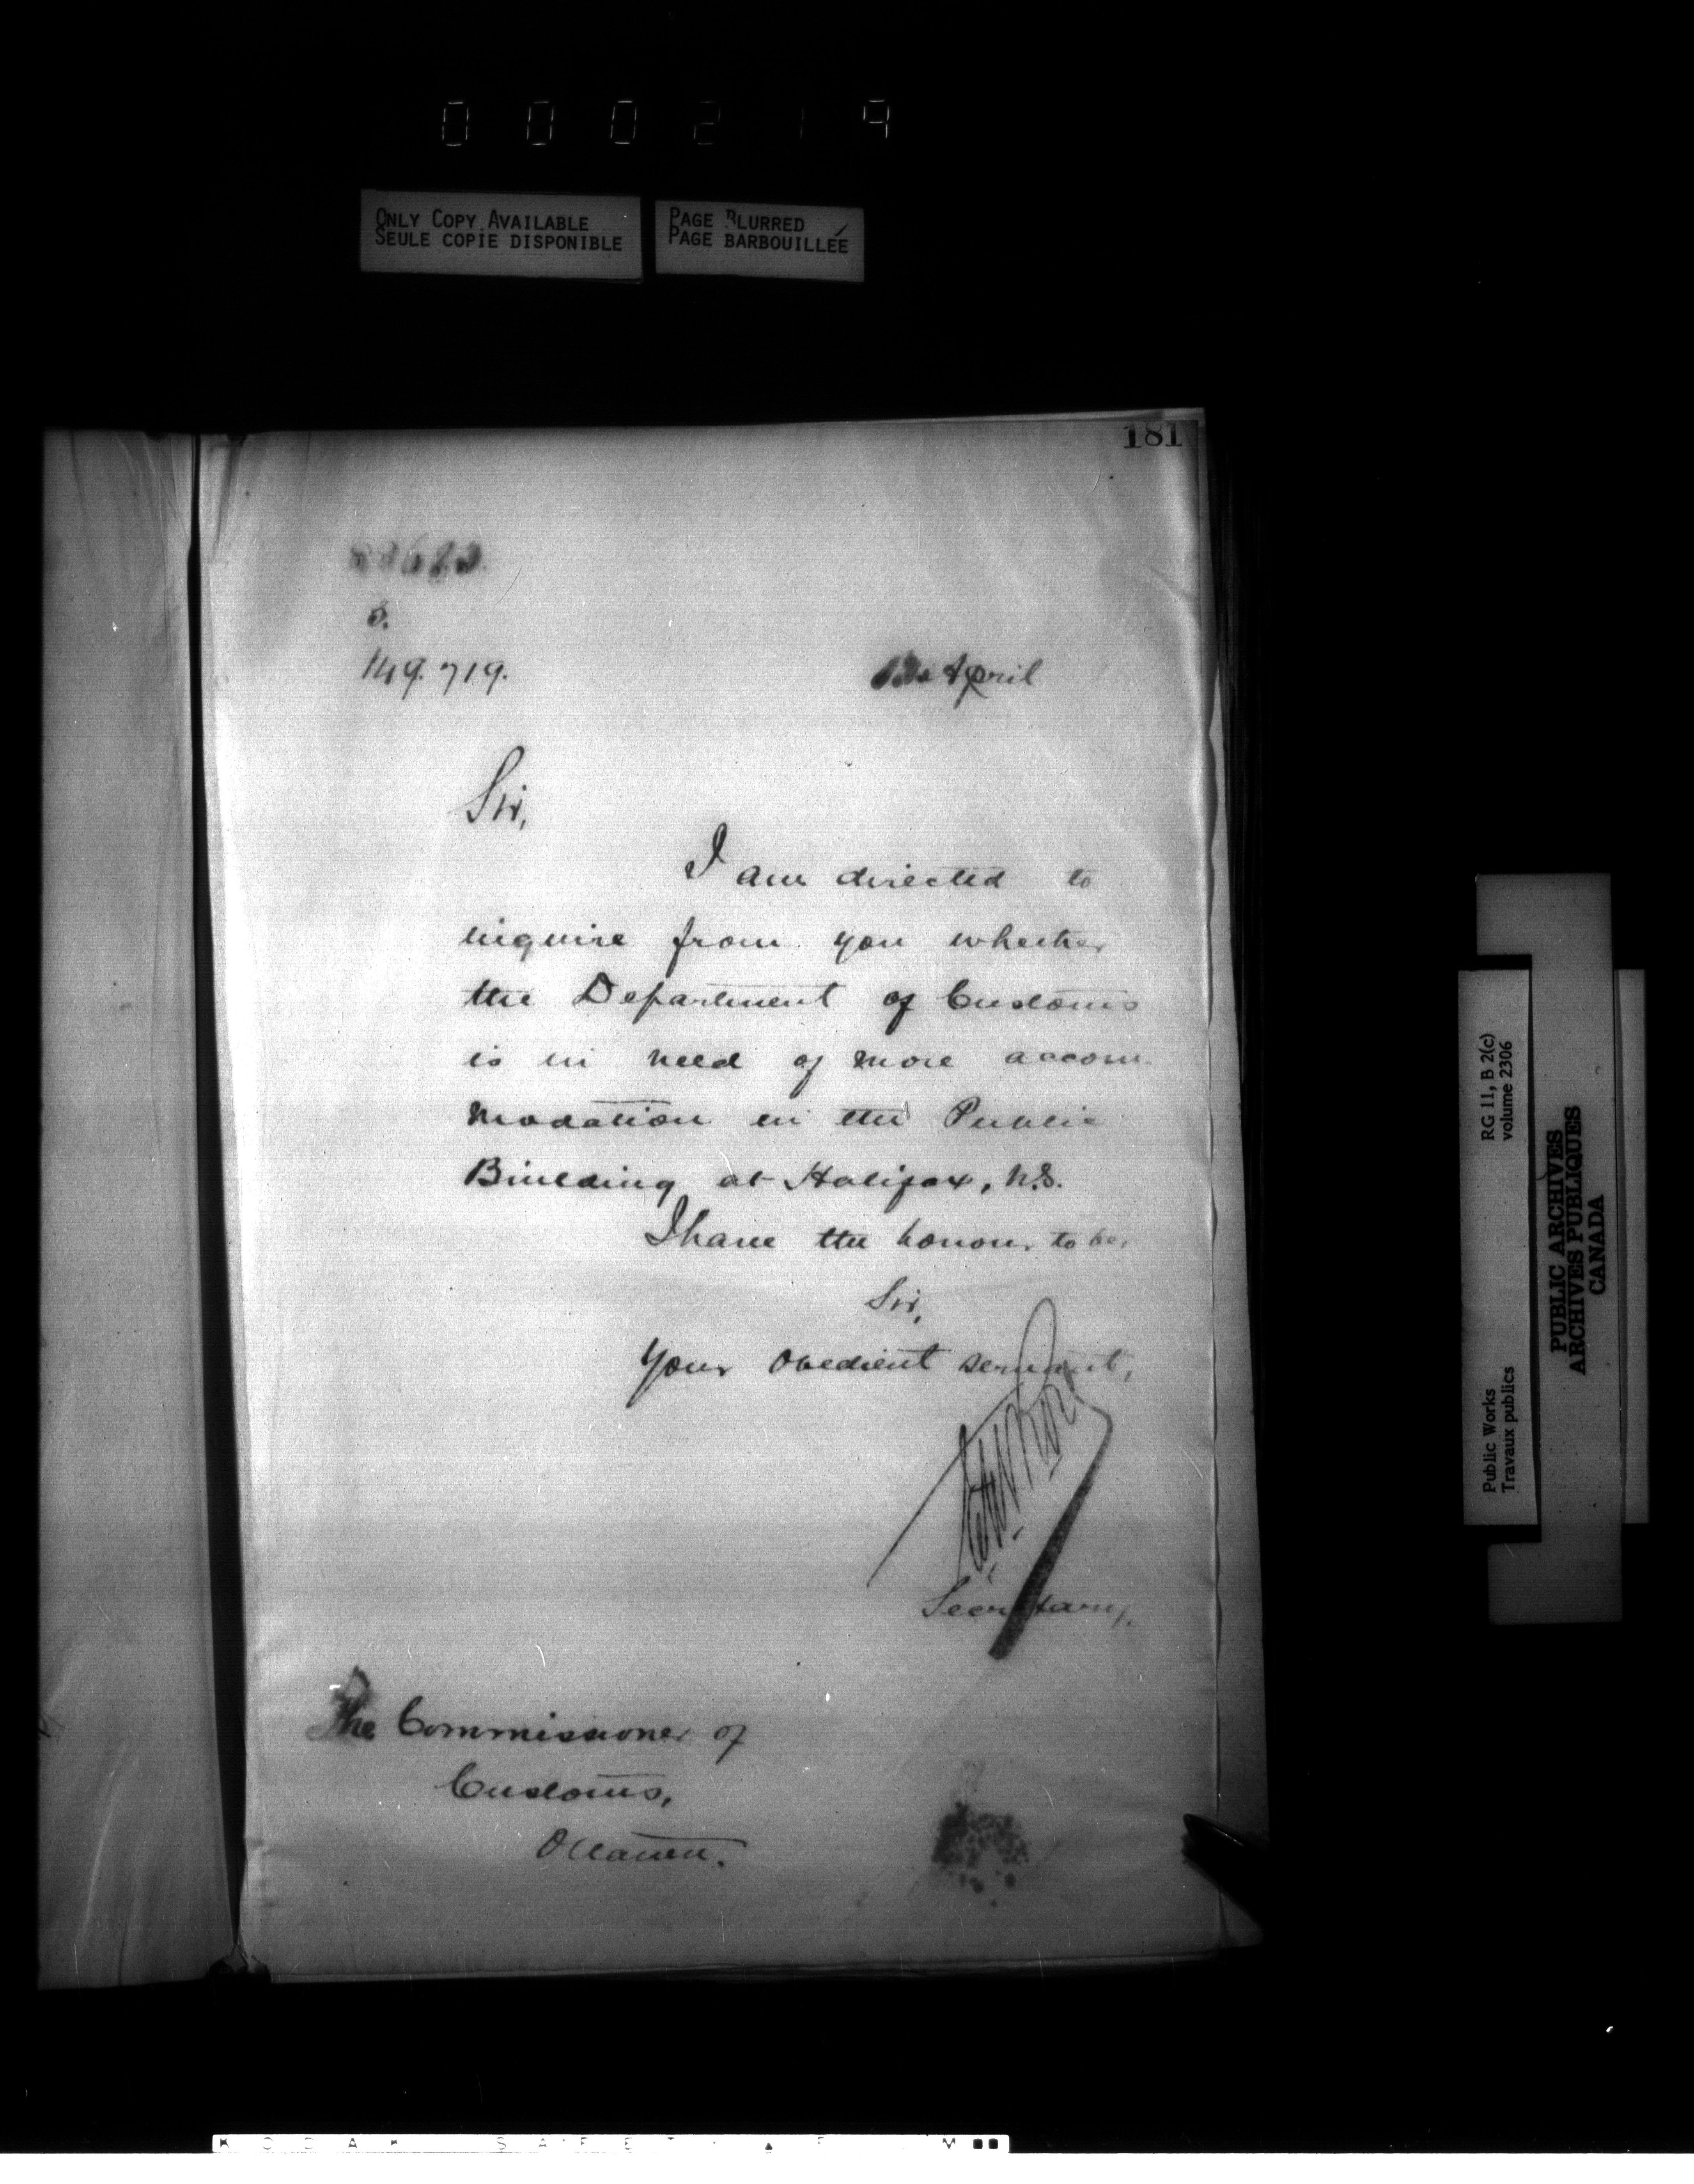 000219
ONLY COPY AVAILABLE
SEULE COPIE DISPONIBLE
PAGE BLURRED
PAGE BARBOUILLÉE
181
149.719.
April
Sir,
I am directed to
inquire from you whether
the Department of Customs
is in need of more accom
modation in the Public
Building at Halifax, N.S.
I have the honour to be,
Sir,
Your obedient servant,
Secretary.
The Commissioner of
Customs,
Ottawa.
RG 11, B 2(c)
volume 2306
Public Works
Travaux publics
PUBLIC ARCHIVES
ARCHIVES PUBLIQUES
CANADA